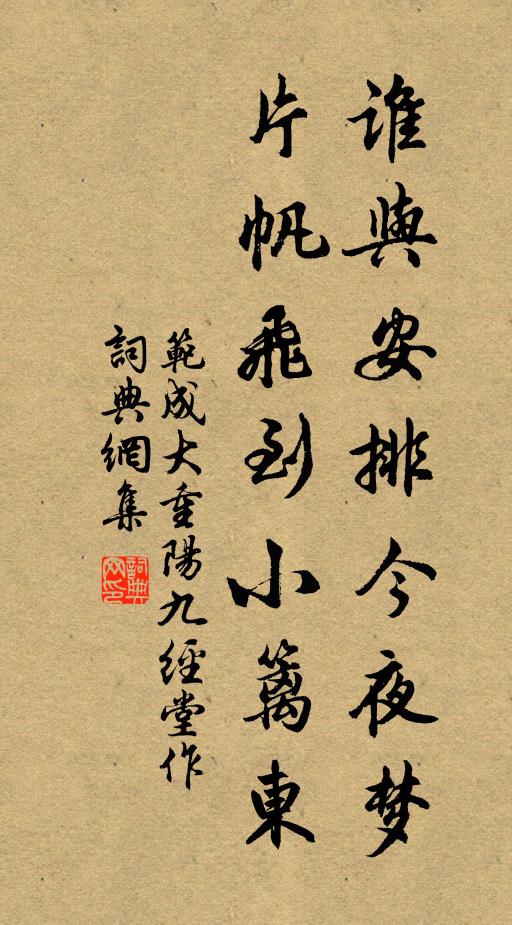 誰與安排今夜梦
片帆飛到小籬東
範成大重陽九經堂作
詞典網集
詞典网印